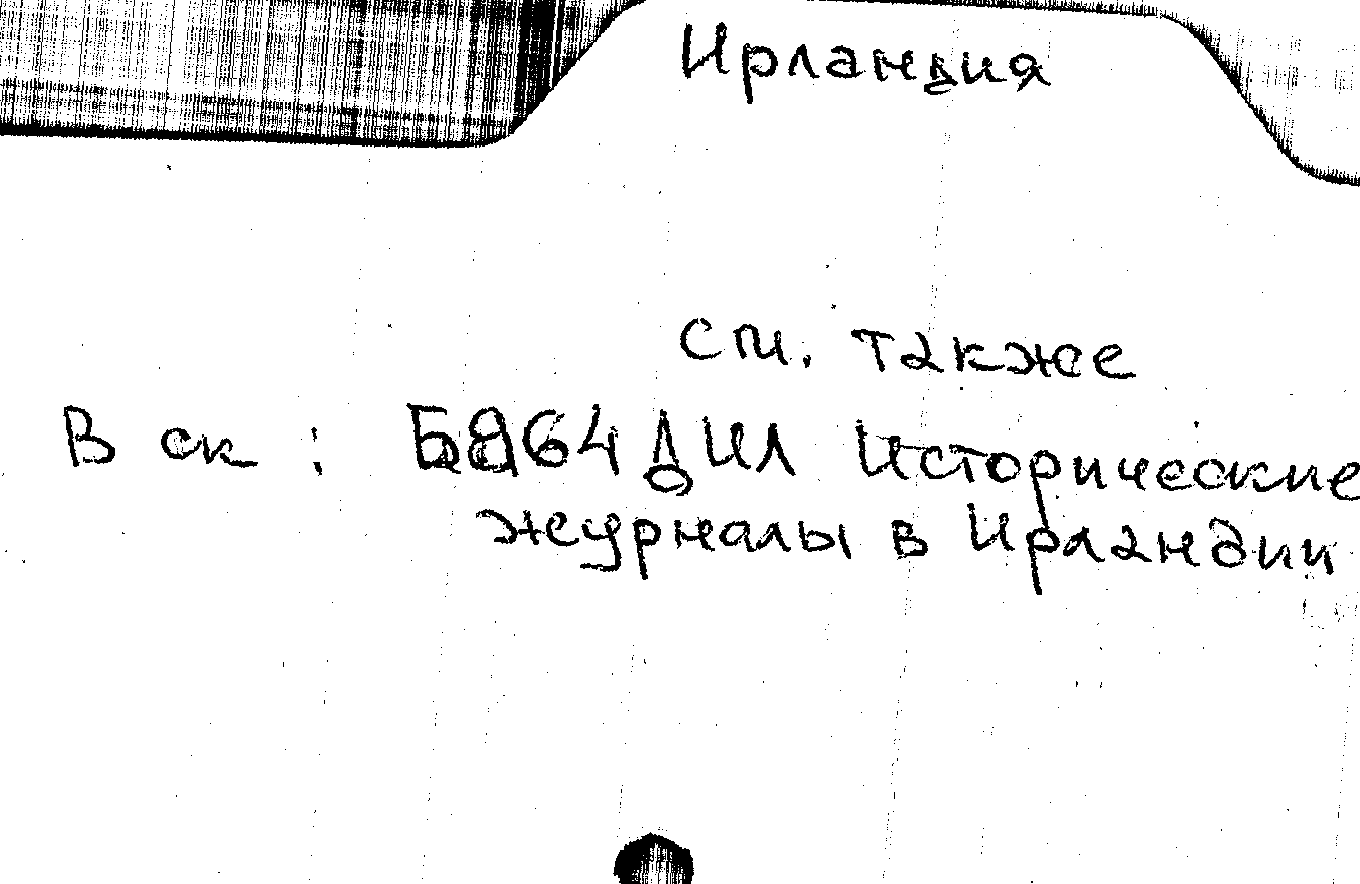 Ирландия
см. также
В ск: Б864 ДИЛ Исторические
журналы в Ирландии